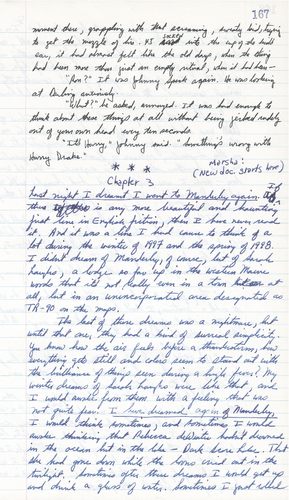 167
moment there, grappling with that screaming, sweaty kid, trying
to get the muzzle of his .45 into the cup of the kid's
ear, it had almost felt like the old days, when the thing
had been more than just an empty ritual, when it had been—
"Ron?" It was Johnny speak again. He was looking
at Darling anxiously.
"What?" he asked, annoyed. It was hard enough to
think about these things at all without being jerked rudely
out of your own head every ten seconds.
"It's Harry," Johnny said. "Something's wrong with
Harry Drake."
* * *
Marsha:
(New doc. starts here)
Chapter 3
Last night I dreamt I went to Manderley again. If
there is any more beautiful and haunting
first line in English fiction, then I have never read
it. And it was a line I had cause to think of a
lot during the winter of 1997 and the spring of 1998.
I didn't dream of Manderley, of course, but of Sara
Laughs, a lodge so far up in the western Maine
woods that it's not really even in a town at
all, but in an unincorporated area designated as
TR-90 on the maps.
The last of these dreams was a nightmare, but
until that one, they had a kind of surreal simplicity.
You know how the air feels before a thunderstorm, how
everything gets still and colors seem to stand out with
the brilliance of things seen during a high fever? My
winter dreams of Sara Laughs were like that, and
I would awake from them with a feeling that was
not quite fear. I have dreamed again of Manderley,
I would think sometimes, and sometimes I would
awake thinking that Rebecca deWinter hadn't drowned
in the ocean but in the lake — Dark Score Lake. That
she had gone down while the loons cried out in the
twilight. Sometimes after these dreams I would get up
and drink a glass of water. Sometimes I just rolled